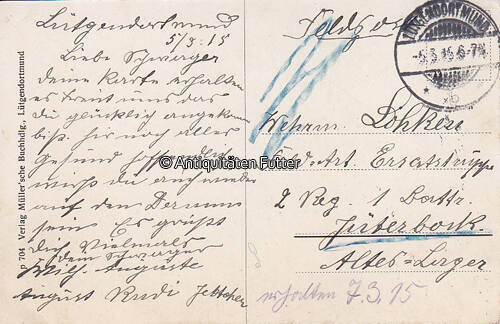 Lütgendortmund
5/3.15
Liebe Schwager
deine Karte erhalten
es freut uns das
du glücklich angekom
bist hir noch alles
gesund
du auch wieder
auf den Damm
sein Es grüßt
dich Vielmals
dein Schwager
Auguste
August Rudi
p 704 Verlag Müller'sche Buchhdlg., Lütgendortmund
Feldpost
LÜTGENDORTMUND
-5.3.15.6-7N.
* *b
Wehrm Löhken
Art. Ersatztruppe
2 Reg. 1 Battr.
Jüterbock
Altes=Lager
erhalten 7.3.15
© Antiquitäten Futter